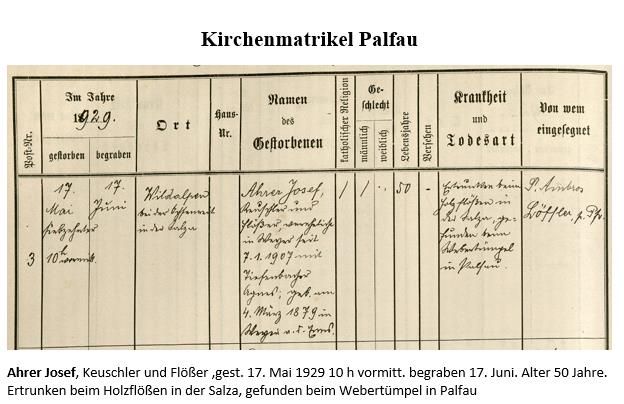 Kirchenmatrikel Palfau
Post-Nr.
Im Jahre
1929.
gestorben
begraben
Ort
Haus-
Nr.
Namen
des
Gestorbenen
katholischer Religion
Ge-
schlecht
männlich
weiblich
Lebensjahre
Versehen
Krankheit
und
Todesart
Von wem
eingesegnet
3
17.
Mai
siebzehnter
10h vormitt.
17.
Juni
Wildalpen
bei der
in der Salza
Ahrer Josef,
Keuschler und
Flößer, verehelicht
in Weyer seit
7.1.1907 mit
Tiefenbacher
Agnes; geb. am
4. März 1879 in
Weyer a. d. Enns.
/
/
50
-
Ertrunken beim
Holzflößen in
der Salza, ge-
funden beim
Webertümpel
in Palfau.
P. Ambros
Löffler, p. Pfr.
Ahrer Josef, Keuschler und Flößer ,gest. 17. Mai 1929 10 h vormitt. begraben 17. Juni. Alter 50 Jahre.
Ertrunken beim Holzflößen in der Salza, gefunden beim Webertümpel in Palfau